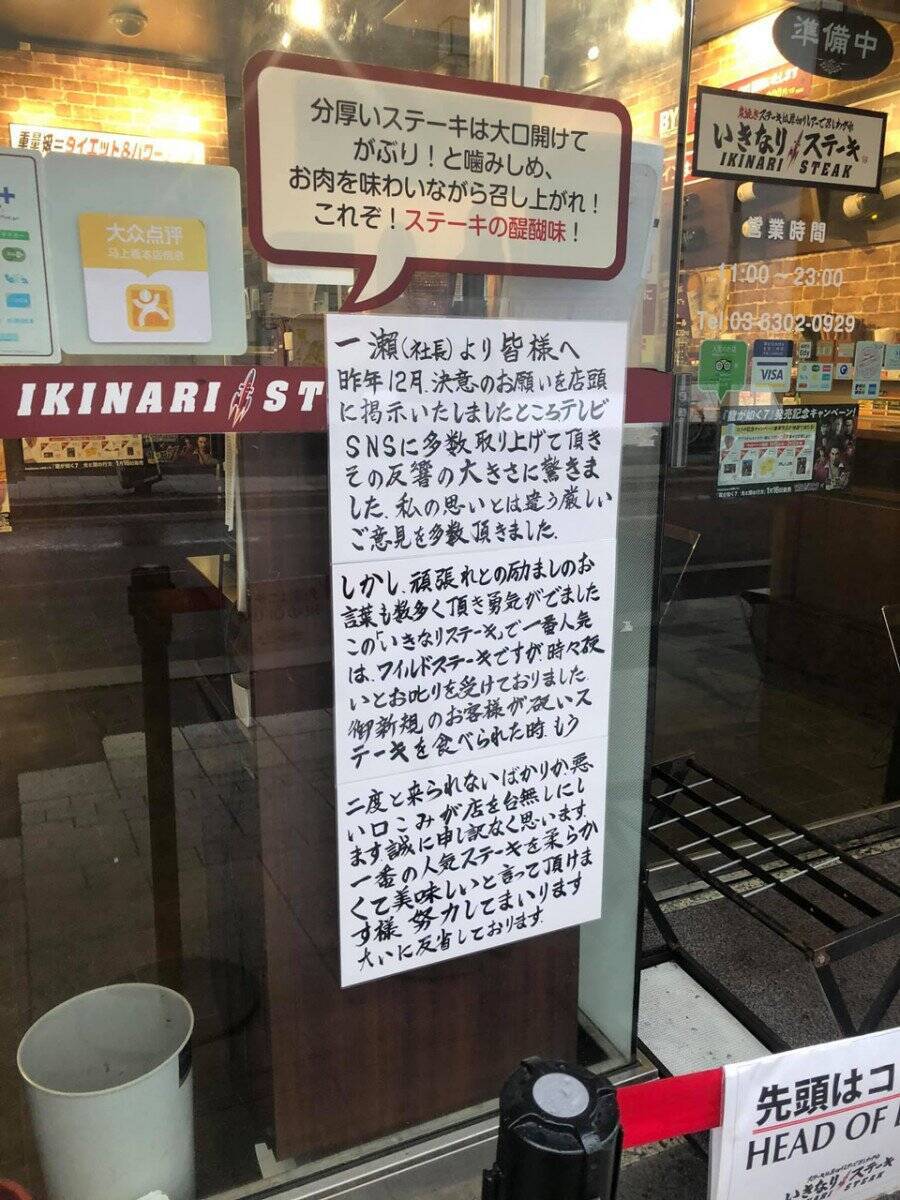 準備中
炭焼きステーキは厚切りレアーで召し上がれ
いきなりステーキ
IKINARI STEAK
営業時間
11:00～23:00
Tel 03-6302-0929
VISA
『龍が如く7』発売記念キャンペーン!
分厚いステーキは大口開けて
がぶり！と噛みしめ、
お肉を味わいながら召し上がれ！
これぞ！ステーキの醍醐味！
大众点评
IKINARI ST
一瀬(社長)より皆様へ
昨年12月、決意のお願いを店頭
に掲示いたしましたところテレビ
SNSに多数取り上げて頂き
その反響の大きさに驚きま
した。私の思いとは違う厳しい
ご意見を多数頂きました。
しかし、頑張れとの励ましのお
言葉も数多く頂き勇気がでました
この「いきなりステーキ」で一番人気
は、ワイルドステーキですが、時々硬
いとお叱りを受けておりました。
御新規のお客様が硬いス
テーキを食べられた時、もう
二度と来られないばかりか悪
い口こみが店を台無しにし
ます誠に申し訳なく思います。
一番の人気ステーキを柔らか
くて美味しいと言って頂けま
す様、努力してまいります
大いに反省しております。
先頭はコ
HEAD OF
いきなりステーキ
STEAK